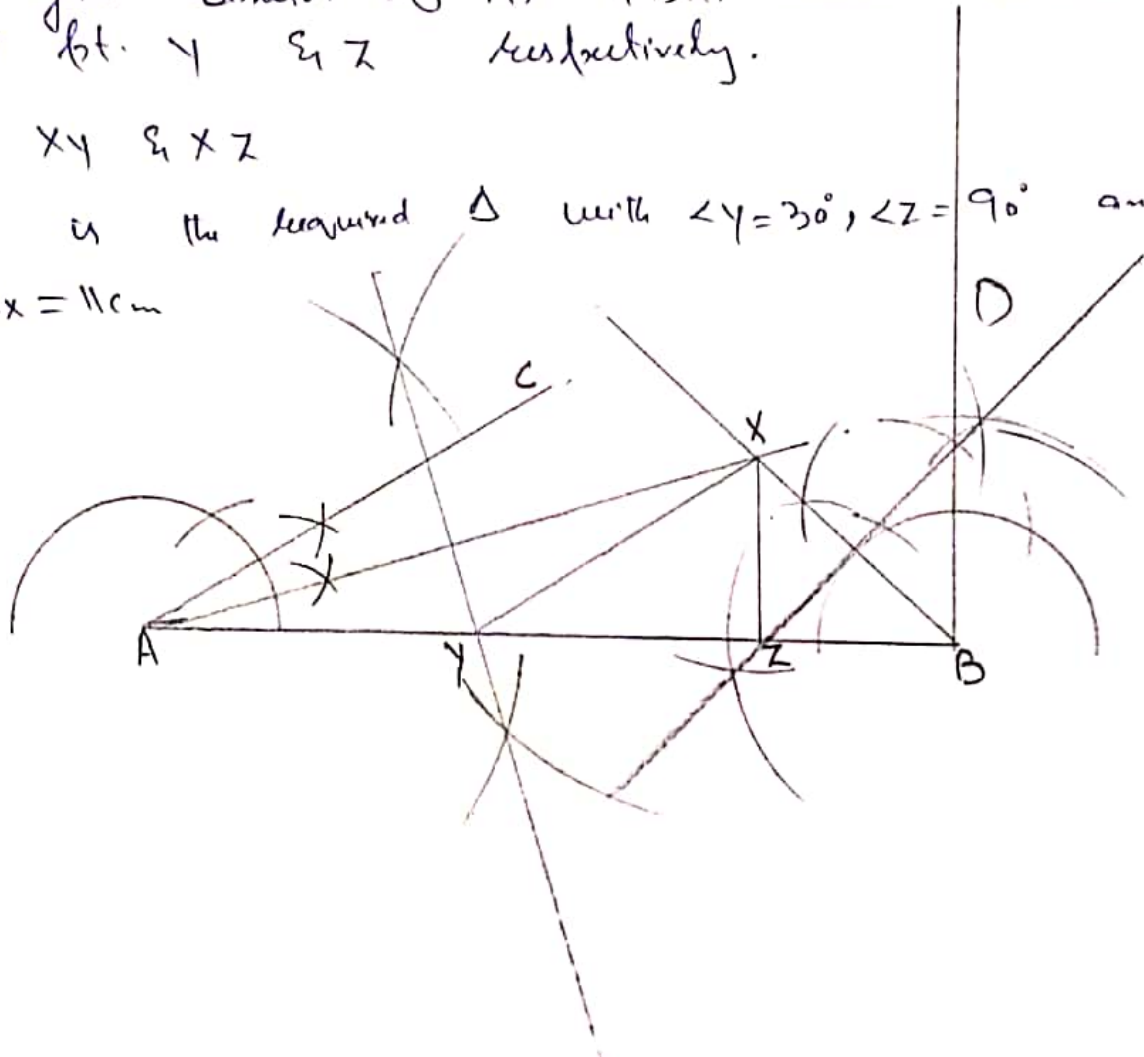 pt. Y & Z respectively.
XY & XZ
is the required Δ with ∠Y=30°, ∠Z=90° an
x = 11cm
C
D
X
A
Y
Z
B